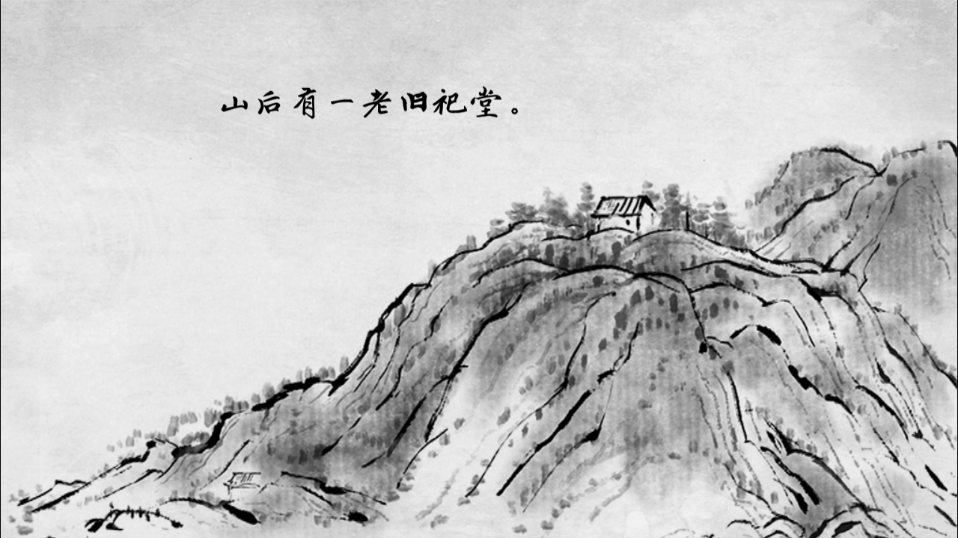 山后有一老旧祀堂。